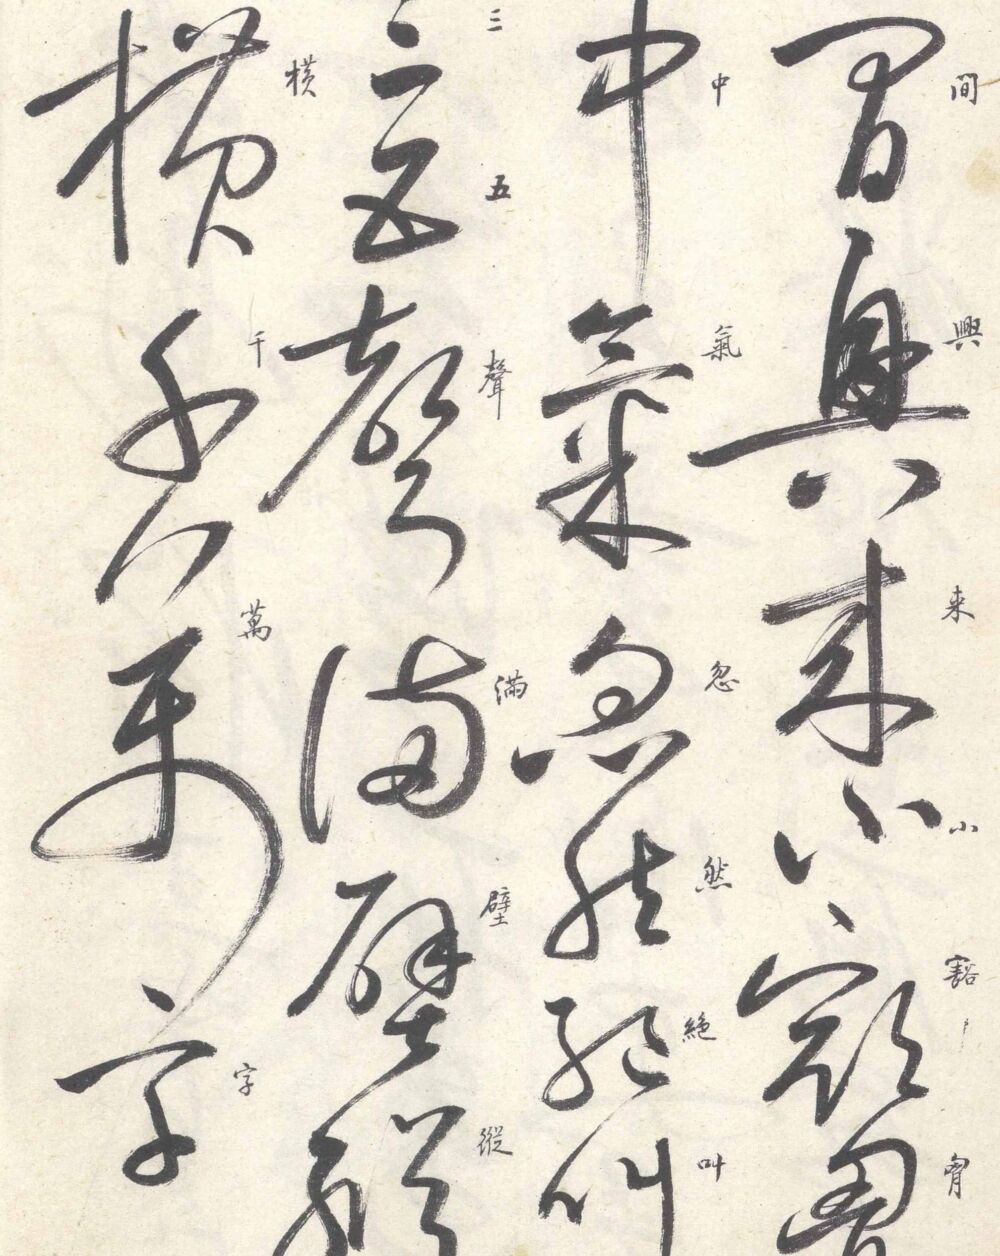 間興来小豁胷
中氣忽然絶叫
三五聲滿壁縱
横千萬字